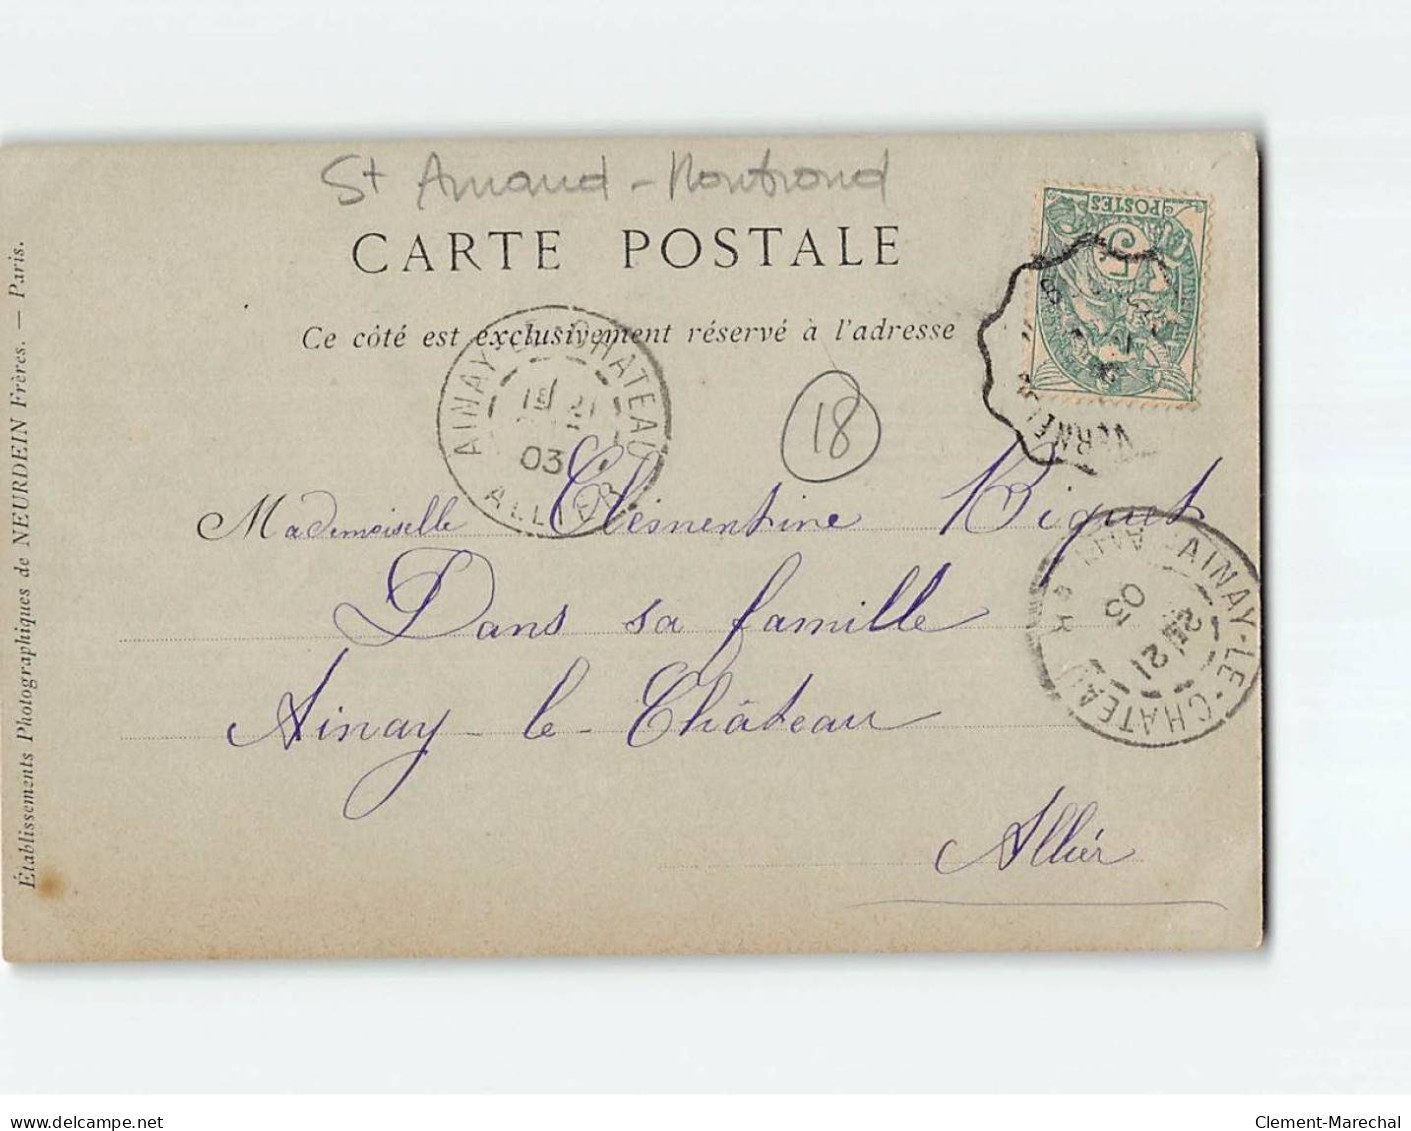 St Amand - Montrond
CARTE POSTALE
Ce côté est exclusivement réservé à l'adresse
POSTES
5
AINAY-LE-CHATEAU
21
03
ALLIER
18
Mademoiselle Clémentine Biguet
Dans sa famille
Ainay-le-Château
Allier
AINAY-LE-CHATEAU
21
03
Établissements Photographiques de NEURDEIN Frères. — Paris.
delcampe.net
Clement-Marechal